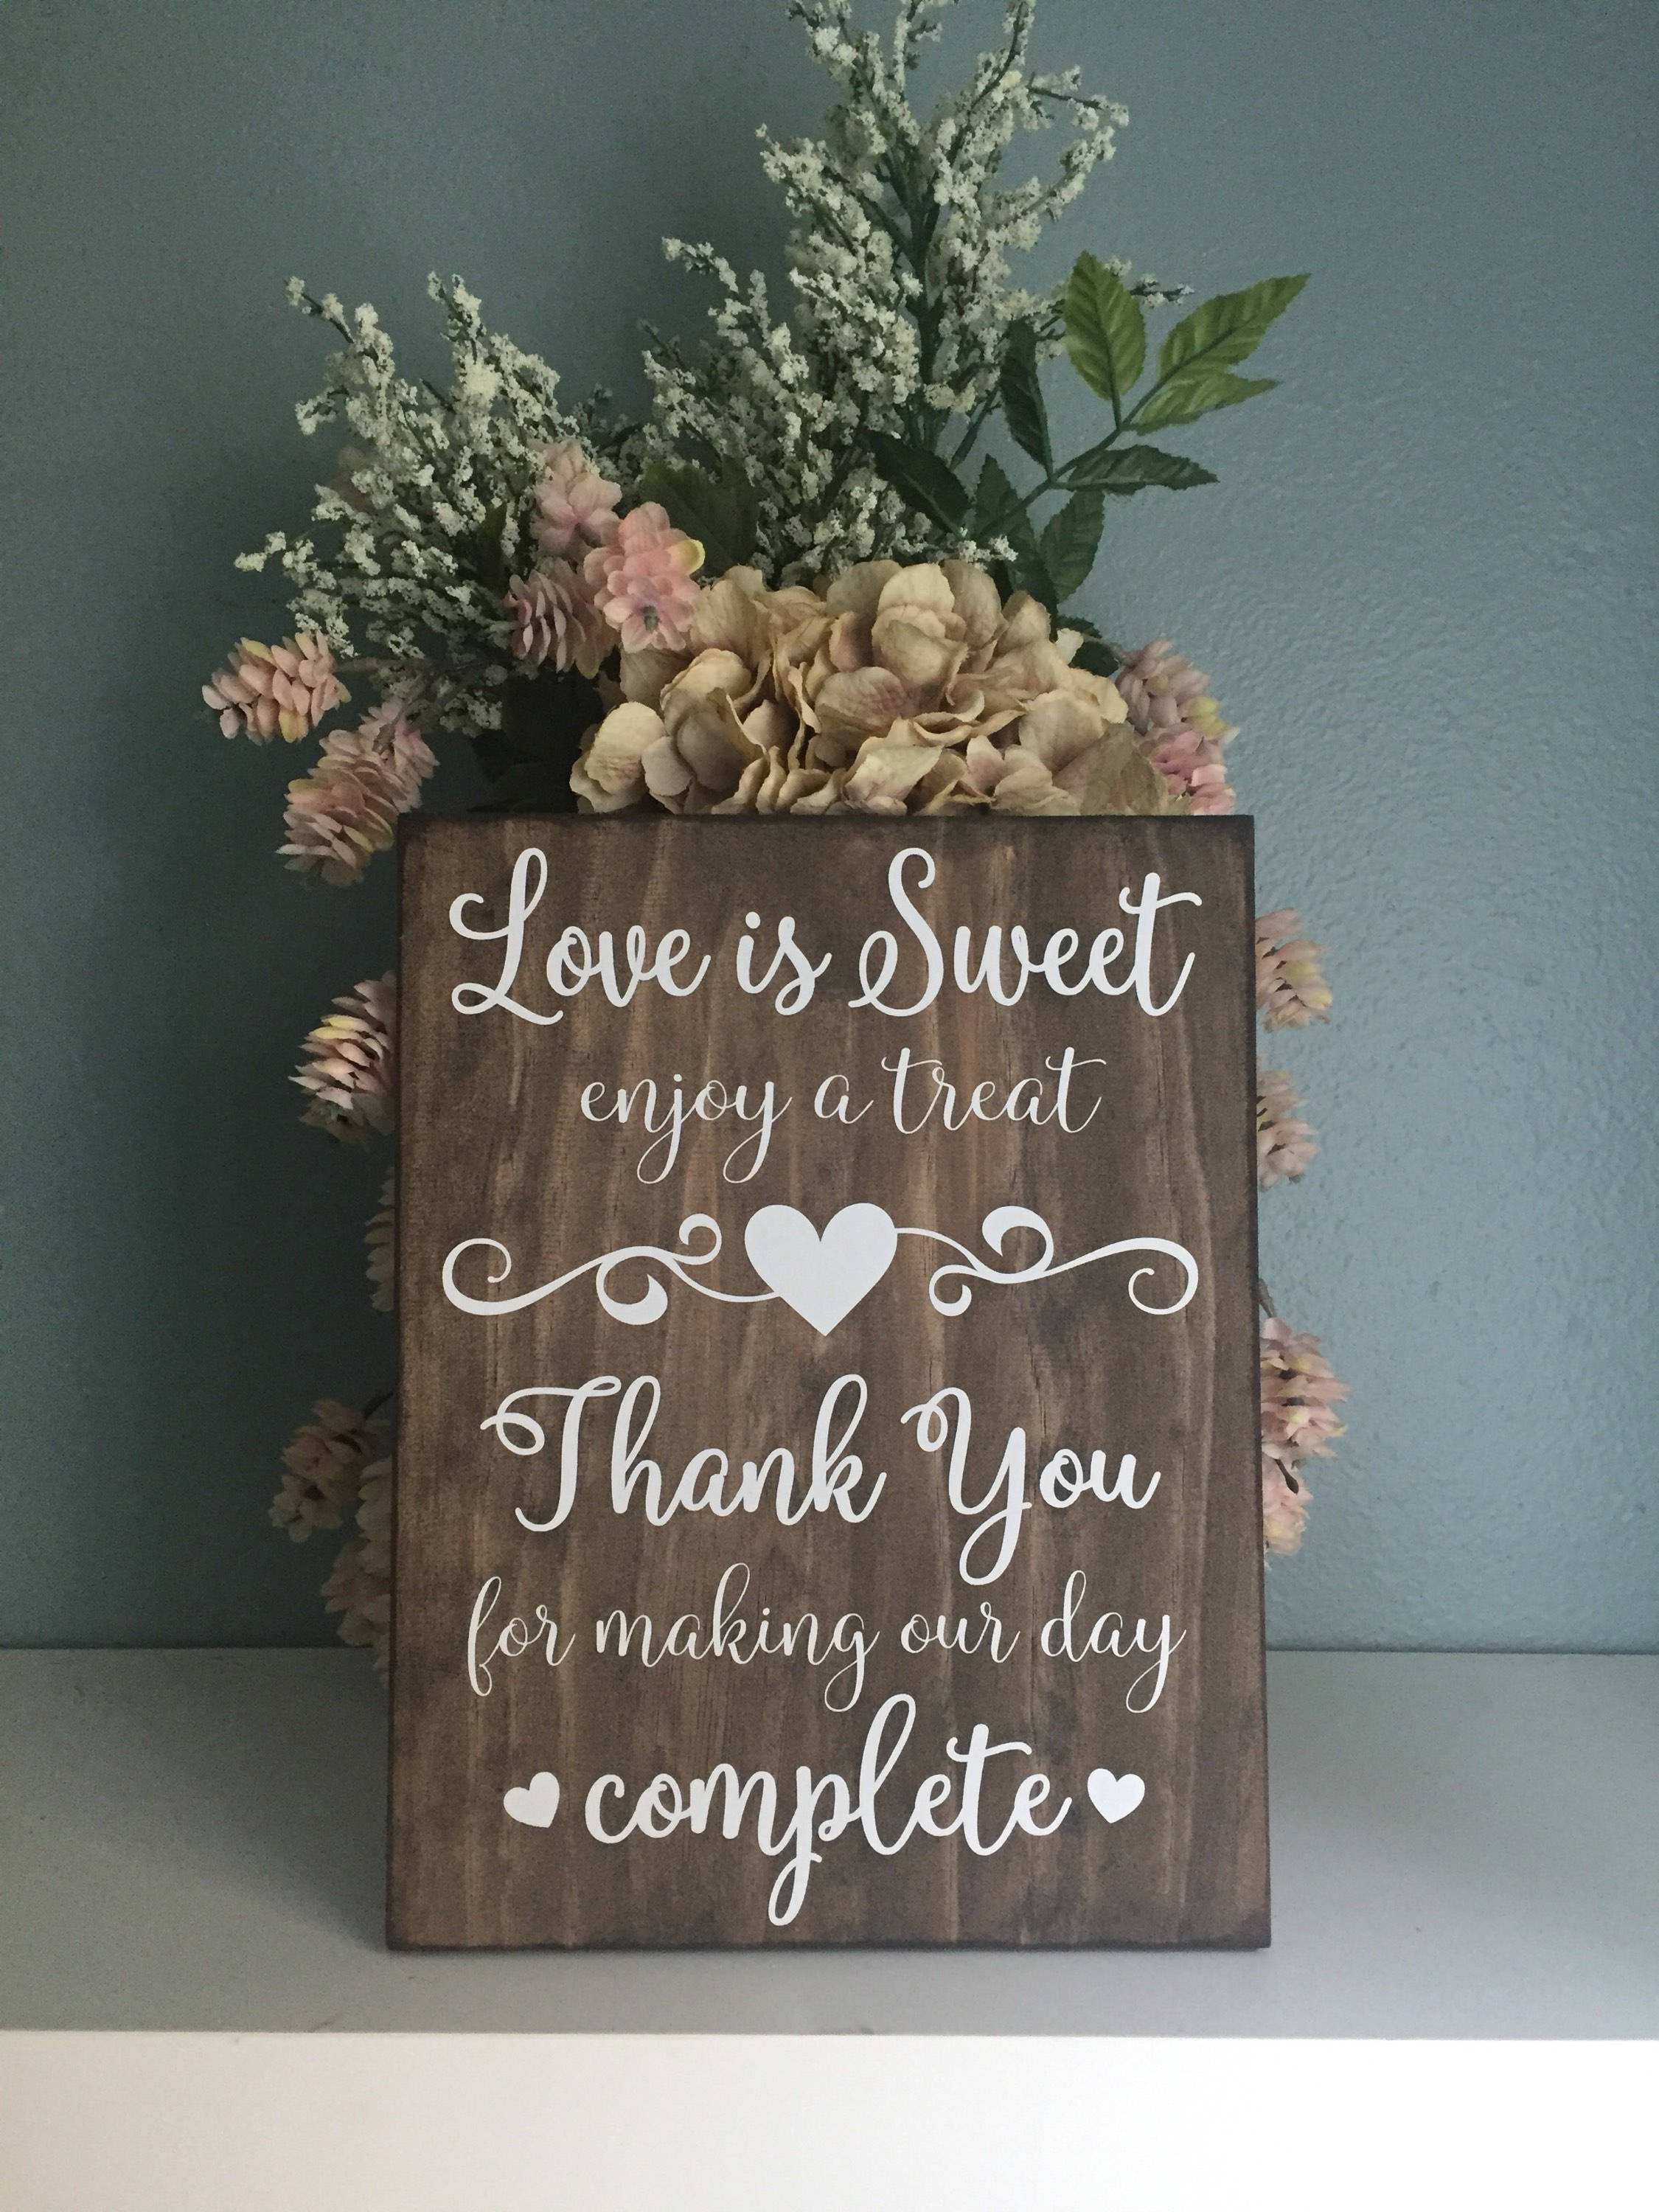 Love is Sweet
enjoy a treat
Thank You
for making our day
complete